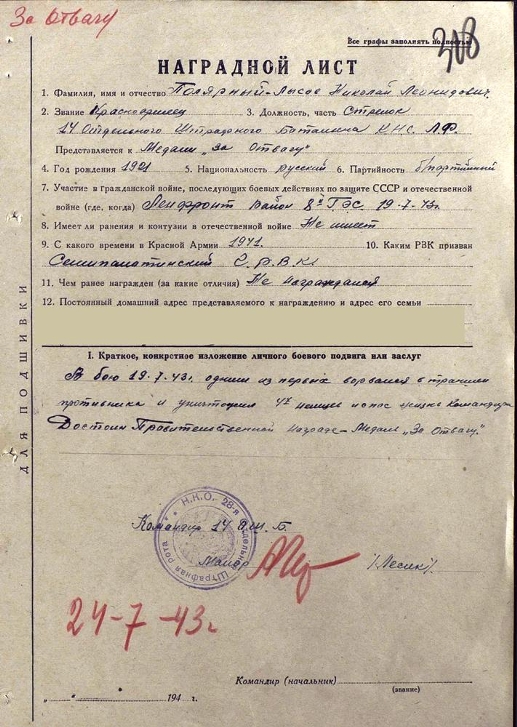 За Отвагу
308
Все графы заполнять полностью
НАГРАДНОЙ ЛИСТ
1. Фамилия, имя и отчество Полярный-Лысов Николай Леонидович
2. Звание Красноармеец 3. Должность, часть Стрелок
14 Отдельного Штрафного Батальона КНС ЛФ
Представляется к Медали „За Отвагу"
4. Год рождения 1921 5. Национальность русский 6. Партийность б/партийный
7. Участие в Гражданской войне, последующих боевых действиях по защите СССР и отечественной
войне (где, когда) Ленфронт район 8й ГЭС 19-7-43г.
8. Имеет ли ранения и контузии в отечественной войне Не имеет
9. С какого времени в Красной Армии 1941 10. Каким РВК призван
Семипалатинский Г.Р.В.К.
11. Чем ранее награжден (за какие отличия) Не награждался
12. Постоянный домашний адрес представляемого к награждению и адрес его семьи
I. Краткое, конкретное изложение личного боевого подвига или заслуг
В бою 19.7.43г. одним из первых ворвался в траншеи
противника и уничтожил 4х немцев и спас жизнь Командира
Достоин Правительственной награде - Медаль „За Отвагу".
Командир 14 О.Ш.Б.
Майор /Лесик/
Н.К.О. 28-я отдельная Штрафная рота
24-7-43г.
Командир (начальник)
(звание)
„ “ 194 г.
ДЛЯ ПОДШИВКИ